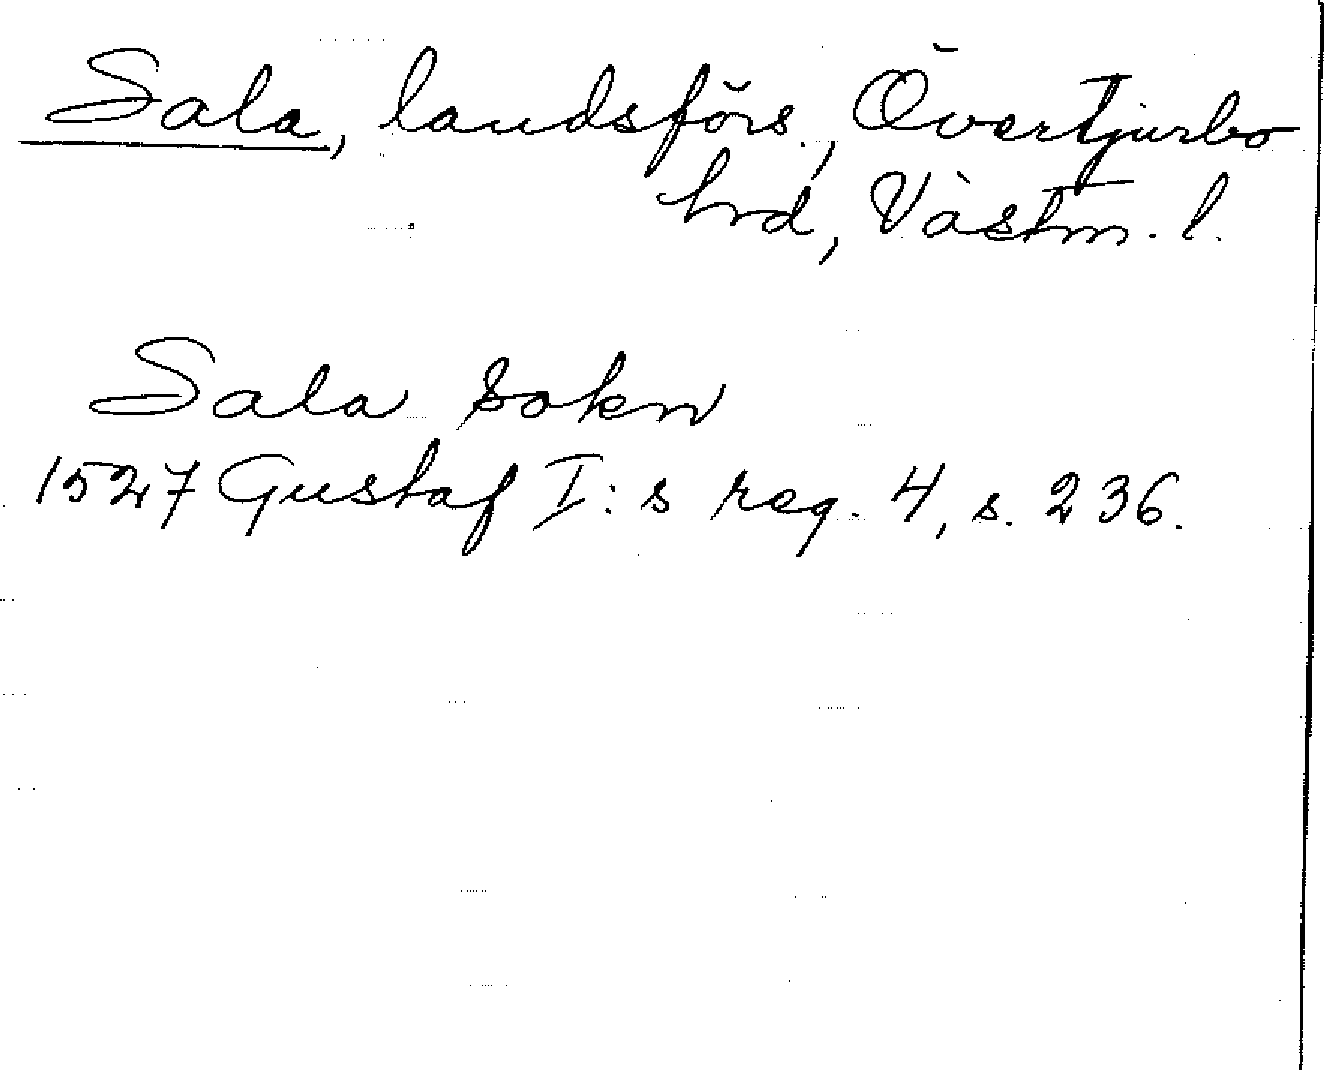 Sala, landsförs., Övertjurbo
hrd, Västm. l.
Sala sokn
1527 Gustaf I:s reg. 4, s. 236.